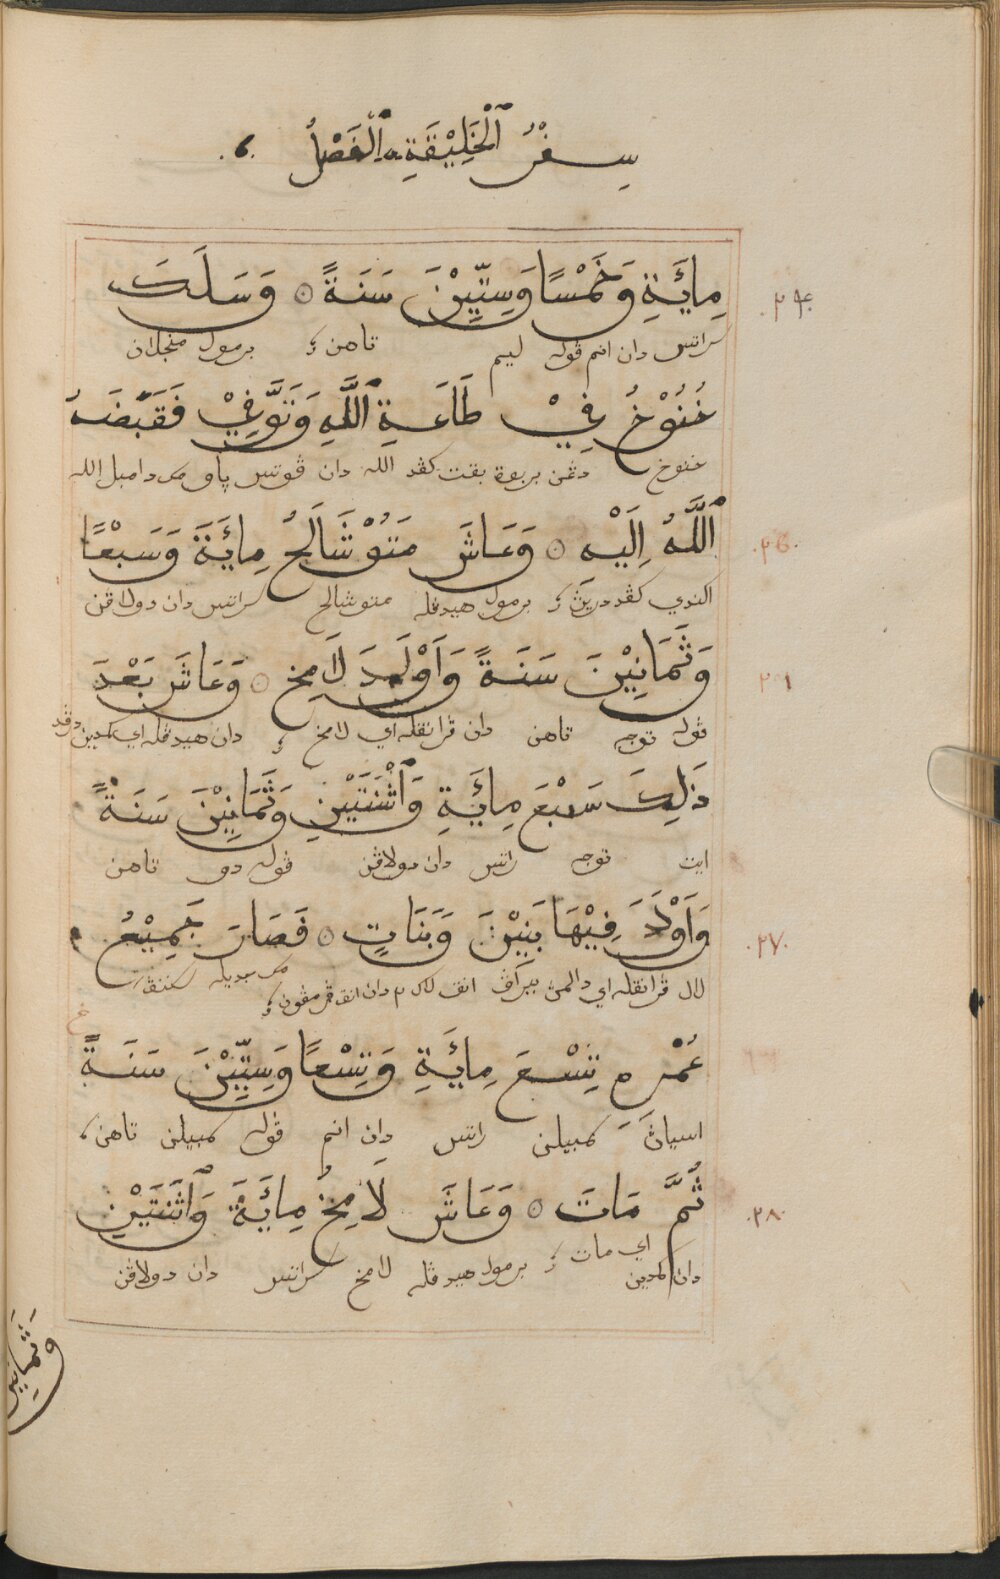 سِفْرُ ٱلْخَلِيْقَةِ ٱلْفَصْلُ .٦.
مِائَةٍ وَخَمْسًا وَسِتِّيْنَ سَنَةً ۝ وَسَلَكَ
.٢٤.
سراتس دان انم ڤوله ليم تاهن برموله منجلان
خَنُوْخُ فِيْ طَاعَةِ ٱللَّهِ وَتَوَفَّيْ فَقَبَضَهُ
خنوخ دڠن بربوة بقت كڤد الله دان ڤوتس ۑاو مک دامبل الله
ٱللَّهُ إِلَيْهِ ۝ وَعَاشَ مَتُوْشَالَحُ مِائَةَ وَسَبْعًا
.٢٥.
اكندي كڤد درين برموله هيدڤله متوشالح سراتس دان دولاڤن
وَثَمَانِيْنَ سَنَةً وَأَوْلَدَ لَامِخ ۝ وَعَاشَ بَعْدَ
٢٦
ڤوله توجه تاهن دان ڤرانقله اي لامخ دان هيدڤله اي كمدين درڤد
ذَلِكَ سَبْعَ مِائَةِ وَٱثْنَتَيْنِ وَثَمَانِيْنَ سَنَةً
ايت توجه راتس دان دولاڤن ڤوله دو تاهن
وَأَوْلَدَ فِيْهَا بَنِيْنَ وَبَنَاتٍ ۝ فَصَارَ جَمِيْعُ
.٢٧.
لال ڤرانقله اي دالمن ببراڤ انق لاك٢ دان انق ڤرمڤون مک جديله سكنڤ
عُمْرِهِ تِسْعَ مِائَةِ وَتِسْعًا وَسِتِّيْنَ سَنَةً
اسيان سمبيلن راتس دان انم ڤوله سمبيلن تاهن
ثُمَّ مَاتَ ۝ وَعَاشَ لَامِخُ مِائَةَ وَٱثْنَتَيْنِ
.٢٨.
دان كمدين اي مات برموله هيدڤله لامخ سراتس دان دولاڤن
وَثَمَانِيْنَ